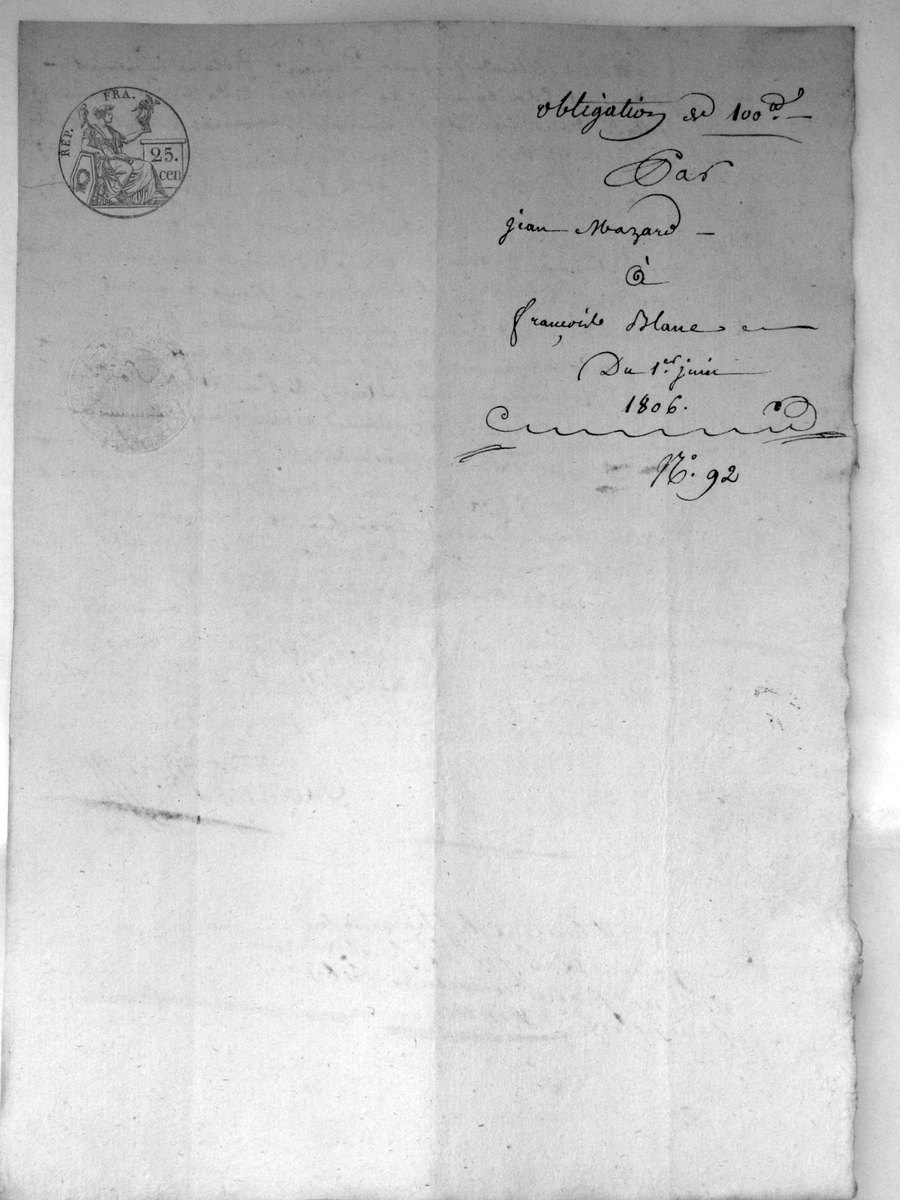 REP. FRA.
25.
cen
obligation de 100
Par
jean Mazard
à
françois Blanc
Du 1er juin
1806.
N.° 92